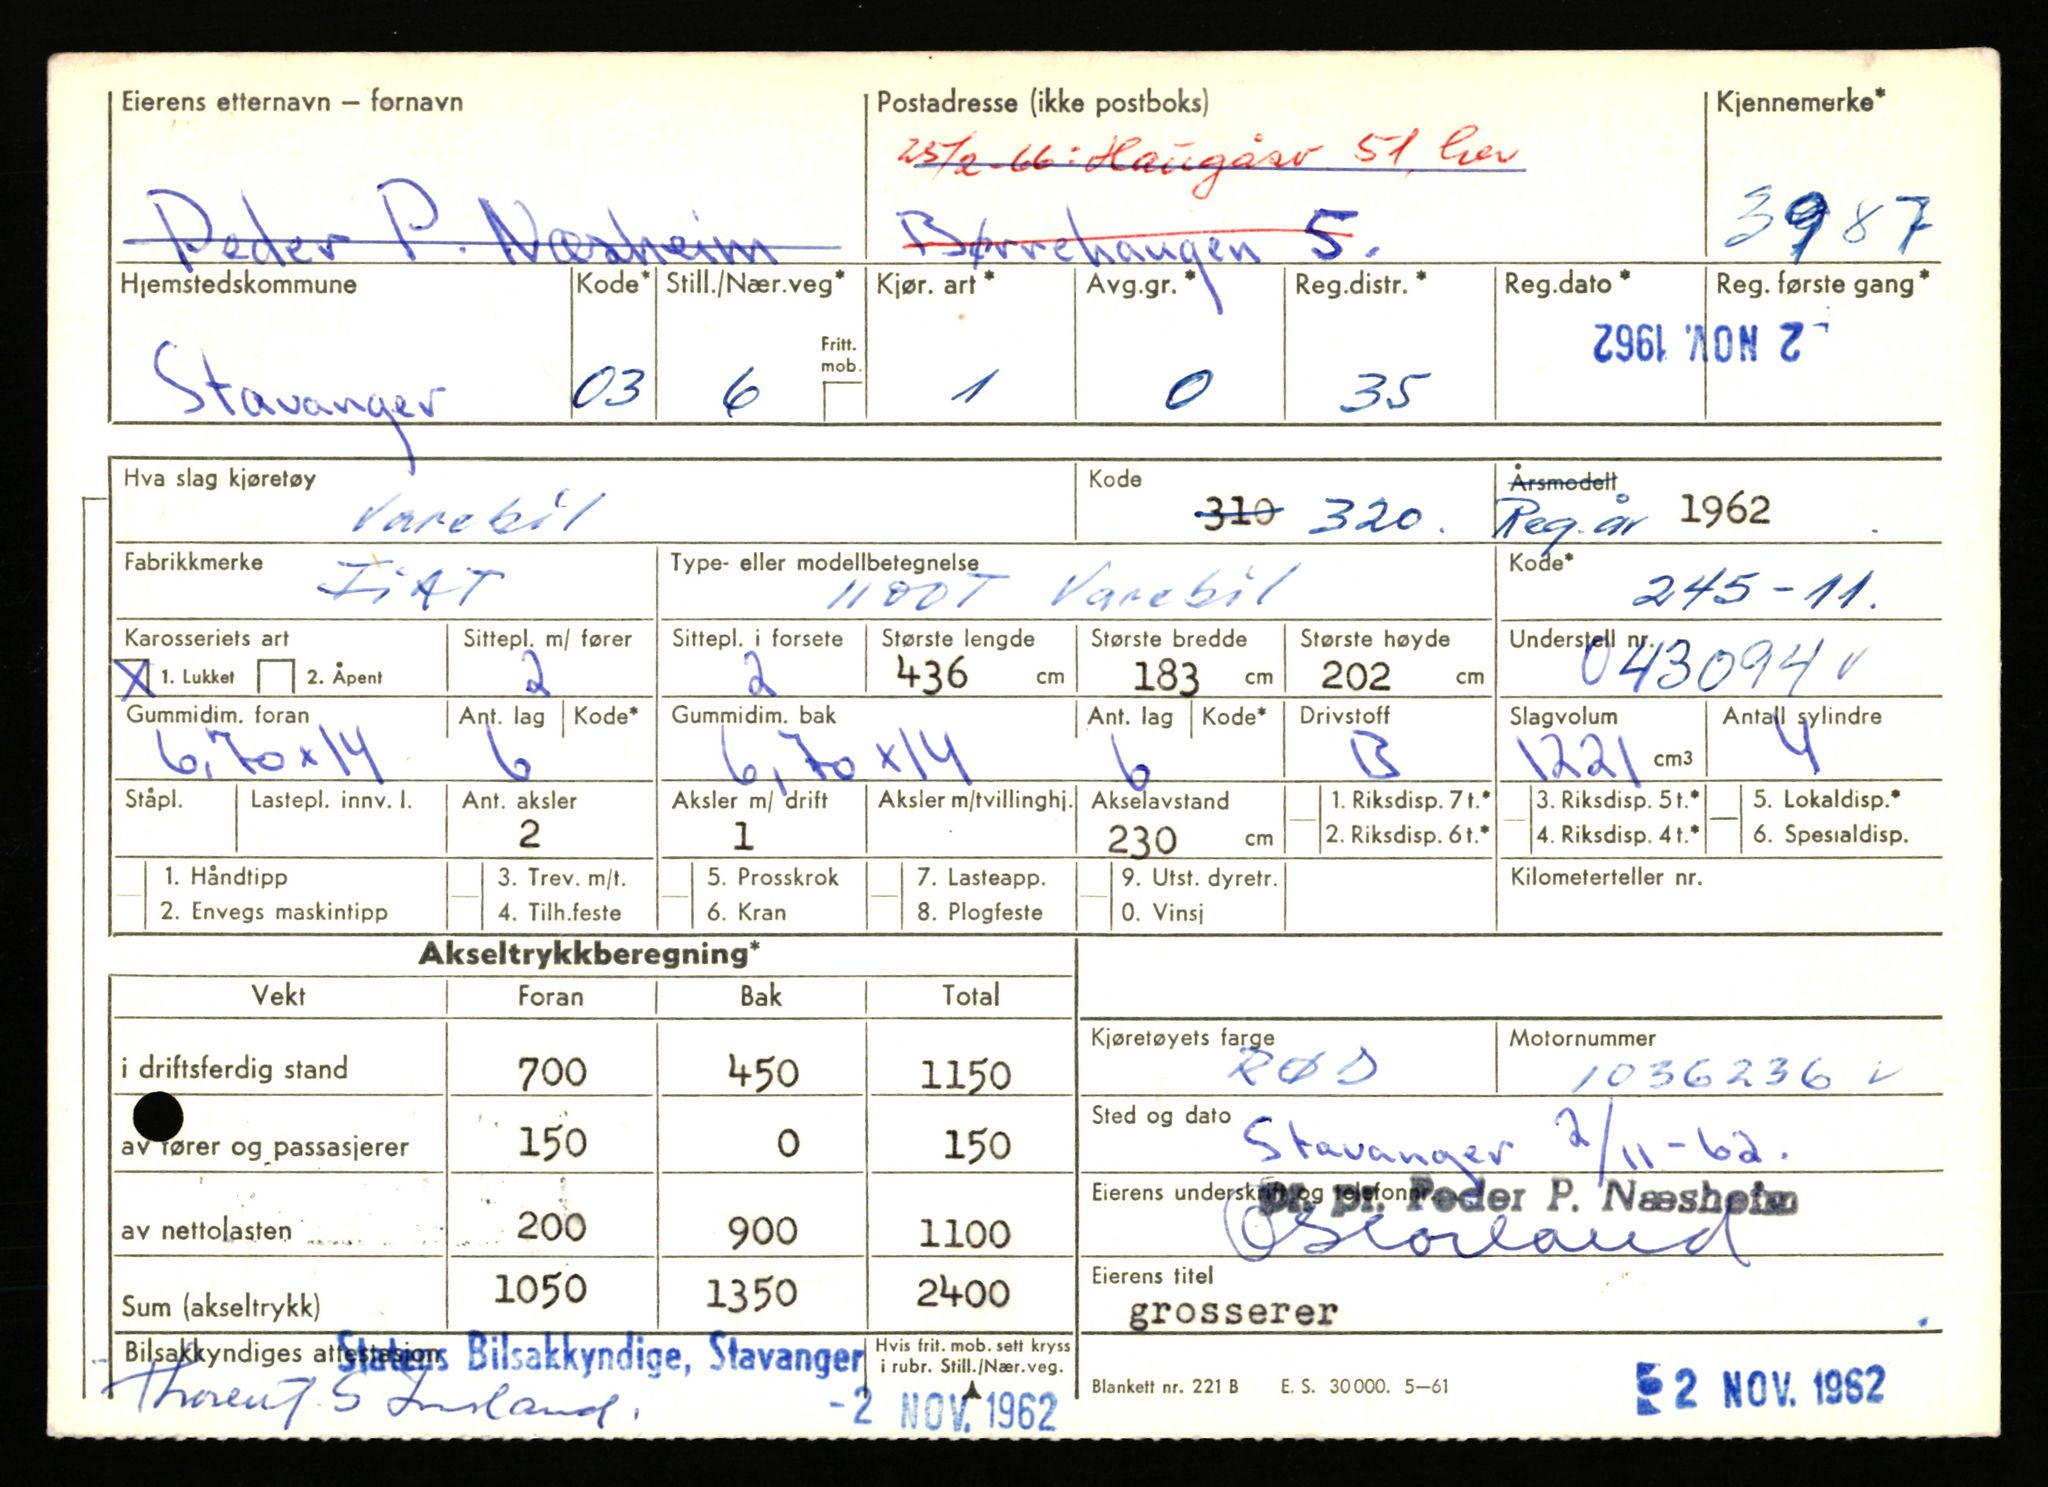 Eierens etternavn – fornavn Postadresse (ikke postboks) Kjennemerke*
25/2-66: Haugåsv 51, her
Peder P. Næsheim Børrehaugen 5. 3987
Hjemstedskommune Kode* Still./Nær.veg* Kjør. art* Avg.gr.* Reg.distr.* Reg.dato* Reg. første gang*
2 NOV. 1962
Fritt. mob.
Stavanger 03 6 1 0 35
Hva slag kjøretøy Kode Årsmodell
Varebil 310 320. Reg.år 1962
Fabrikkmerke Type- eller modellbetegnelse Kode*
FIAT 1100T Varebil 245-11.
Karosseriets art Sittepl. m/ fører Sittepl. i forsete Største lengde Største bredde Største høyde Understell nr.
X 1. Lukket 2. Åpent 2 2 436 cm 183 cm 202 cm 043094 v
Gummidim. foran Ant. lag Kode* Gummidim. bak Ant. lag Kode* Drivstoff Slagvolum Antall sylindre
6,70x14 6 6,70x14 6 B 1221 cm3 4
Ståpl. Lastepl. innv. l. Ant. aksler Aksler m/ drift Aksler m/tvillinghj. Akselavstand 1. Riksdisp. 7 t.* 3. Riksdisp. 5 t.* 5. Lokaldisp.*
2 1 230 cm 2. Riksdisp. 6 t.* 4. Riksdisp. 4 t.* 6. Spesialdisp.
1. Håndtipp 3. Trev. m/t. 5. Prosskrok 7. Lasteapp. 9. Utst. dyretr. Kilometerteller nr.
2. Envegs maskintipp 4. Tilh.feste 6. Kran 8. Plogfeste 0. Vinsj
Akseltrykkberegning*
Vekt Foran Bak Total
i driftsferdig stand 700 450 1150
av fører og passasjerer 150 0 150
av nettolasten 200 900 1100
Sum (akseltrykk) 1050 1350 2400
Kjøretøyets farge Motornummer
RØD 1036236 v
Sted og dato
Stavanger 2/11-62.
Eierens underskrift og telefonnr.
pr. pr. Peder P. Næsheim
Eierens titel
grosserer
Bilsakkyndiges attestasjon
Statens Bilsakkyndige, Stavanger
Hvis frit. mob. sett kryss
i rubr. Still./Nær.veg.
-2 NOV. 1962
Blankett nr. 221 B E. S. 30 000. 5–61
2 NOV. 1962